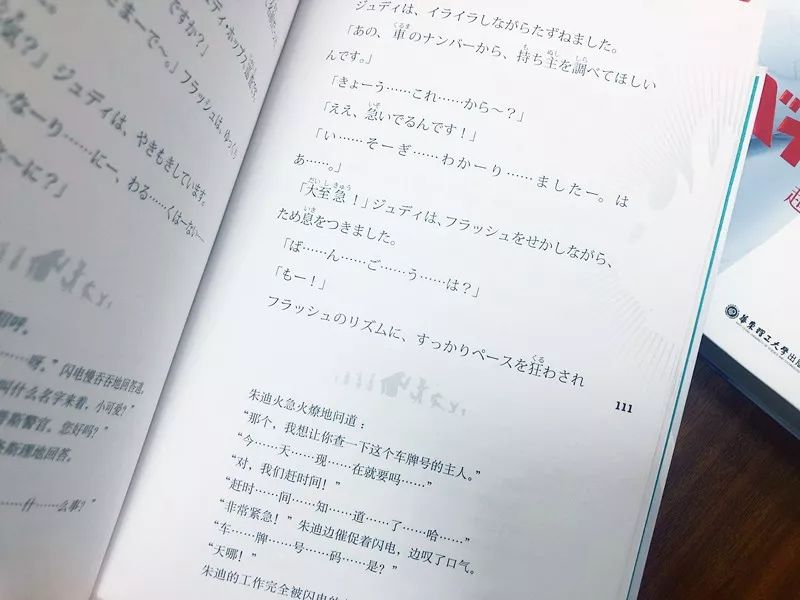 まーで〜。」フラッシュは、ゆっくり
ジュディは、やきもきしています。
なーり……にー、わる……くはーないー
〜に？」
呀。”闪电慢吞吞地回答道。
叫什么名字来着，小可爱？”
警官。您好吗？”
斯理地回答。
……什……么事？”
ジュディは、イライラしながらたずねました。
「あの、車のナンバーから、持ち主を調べてほしい
んです。」
「きょーう……これ……から〜？」
「ええ、急いでるんです！」
「い……そーぎ……わかーり……ましたー。は
あ……。」
「大至急！」ジュディは、フラッシュをせかしながら、
ため息をつきました。
「ば……ん……ご……う……は？」
「もー！」
フラッシュのリズムに、すっかりペースを狂わされ
111
朱迪火急火燎地问道：
“那个，我想让你查一下这个车牌号的主人。”
“今……天……现……在就要吗……”
“对，我们赶时间！”
“赶时……间……知……道……了……哈……”
“非常紧急！”朱迪边催促着闪电，边叹了口气。
“车……牌……号……码……是？”
“天哪！”
朱迪的工作完全被闪电的
華東理工大學出版